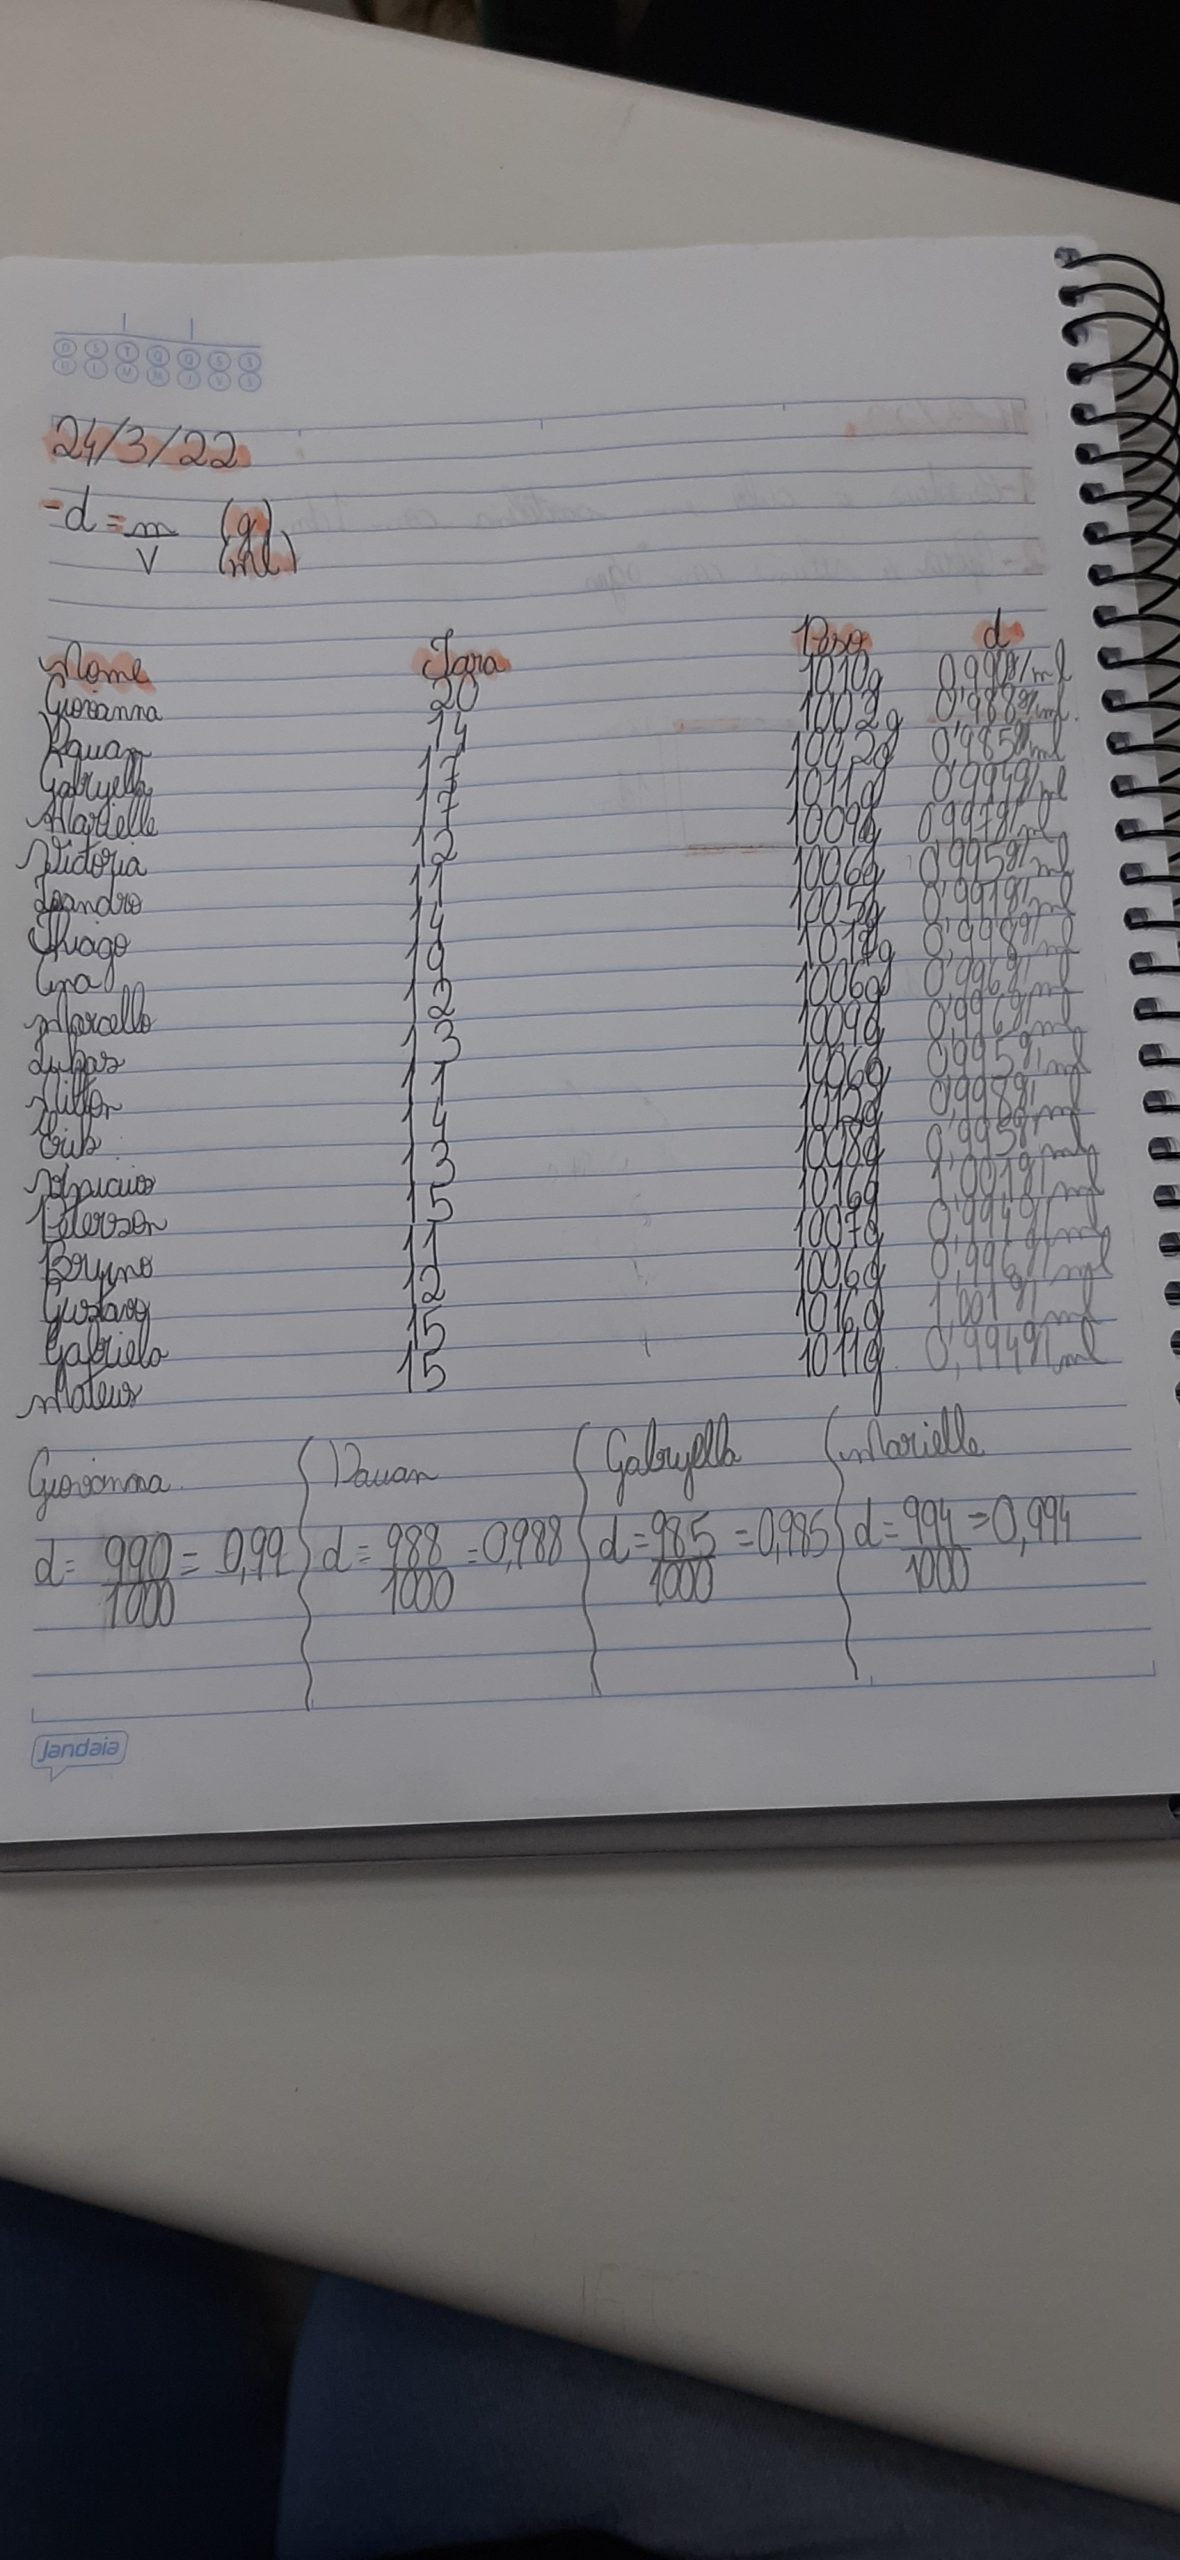 D S T Q Q S S
D L M M J V S
24/3/22
-d = m/V (g) (ml)
Nome Tara Peso d
Giovanna 20 1010g 0,990g/ml
Rauan 14 1002g 0,988g/ml
Gabryella 17 1002g 0,985g/ml
Marielle 17 1011g 0,994g/ml
Victoria 12 1009g 0,997g/ml
Leandro 11 1006g 0,995g/ml
Thiago 14 1005g 0,991g/ml
Ana 19 1017g 0,998g/ml
Marcello 12 1006g 0,996g/ml
Lukas 13 1009g 0,996g/ml
Nilton 11 1006g 0,995g/ml
Erik 14 1012g 0,998g/ml
13 1008g 0,995g/ml
Peterson 15 1016g 1,001g/ml
Bruno 11 1007g 0,994g/ml
Gustavo 12 1006g 0,996g/ml
Gabriela 15 1016g 1,001g/ml
Mateus 15 1011g 0,994g/ml
Giovanna Rauan Gabryella Marielle
d = 990/1000 = 0,99 d = 988/1000 = 0,988 d = 985/1000 = 0,985 d = 994/1000 = 0,994
Jandaia